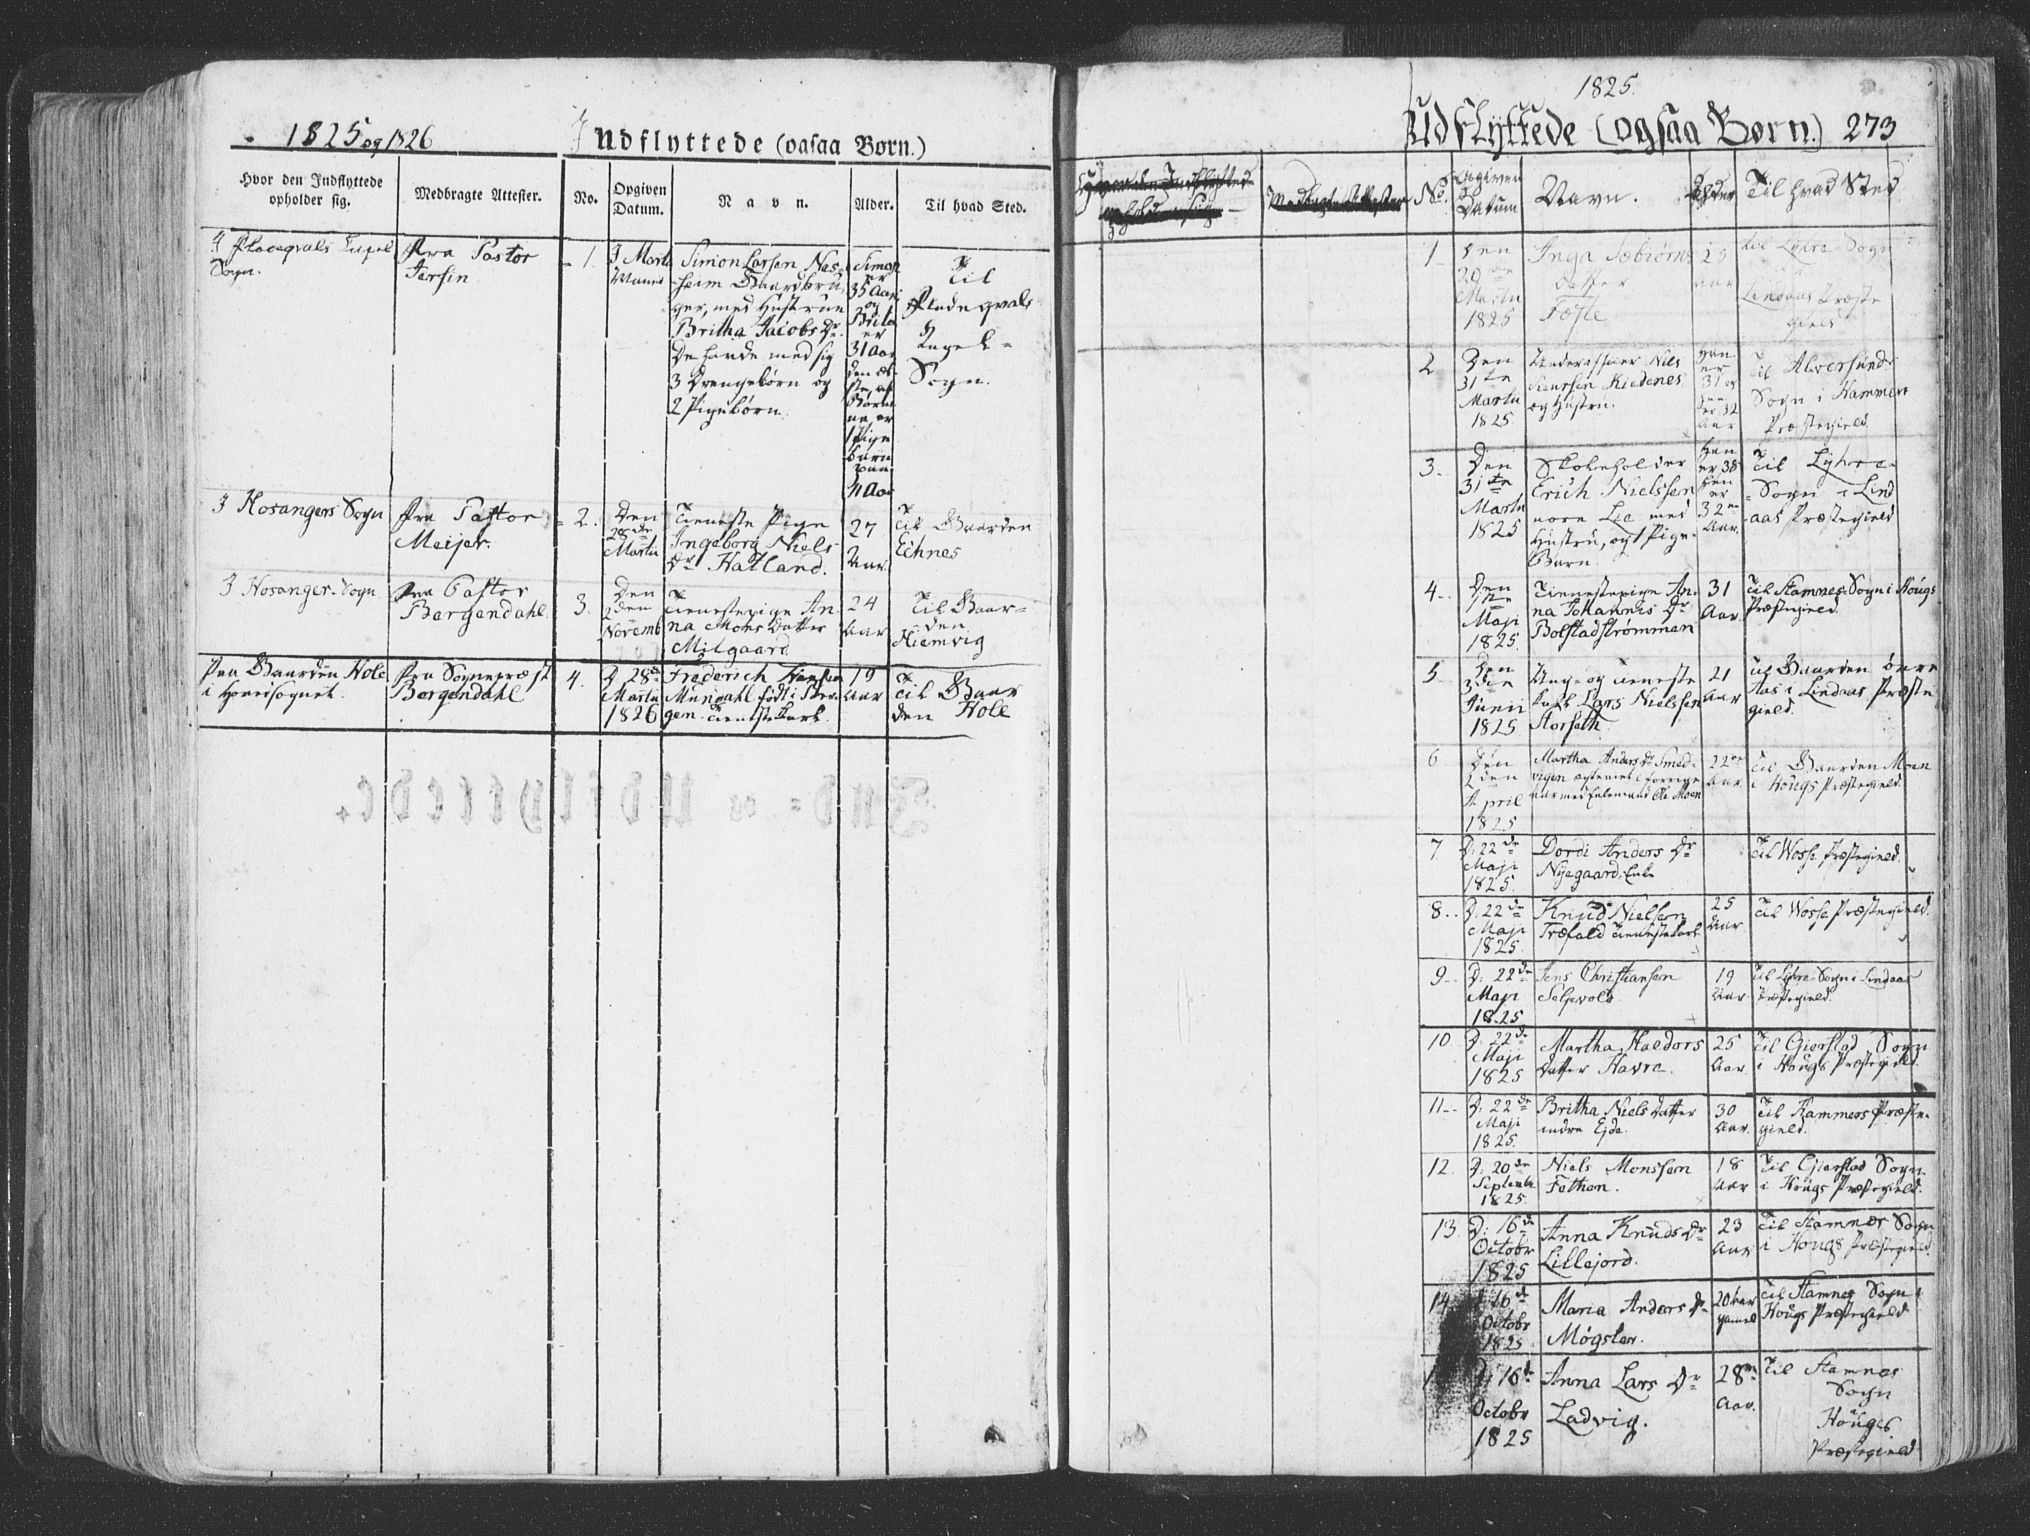 1825 og 1826
Indflyttede (ogsaa Børn.)
Hvor den Indflyttede
opholder sig.
Medbragte Attester.
No.
Opgiven
Datum.
Navn.
Alder.
Til hvad Sted.
Sogn.
Fra Pastor
1.
3 Marti
Simon Larsen Nas-
heim Gaardbru-
ger, med Hustrue
Britha Jacobs Dr.
De havde med sig
3 Drengebørn og
2 Pigebørn.
Simon
er
35 Aar
og
Brita
er
31 Aar
Til
Sogn.
I Hosangers Sogn
Fra Pastor
Meijer.
2.
Den
28de
Martii
Tieneste Pige
Ingeborg Niels
Dr Hatland.
27
Aar.
Til Gaarden
Eihnes
I Hosanger-Sogn
Fra Pastor
Bergendahl.
3.
Den
2den
Novemb
Tienestepige An-
na Mons Datter
Milgaard
24
Aar
Til Gaar-
den
Hiemvig
Paa Gaarden Hole
i Hovedsognet.
Fra Sognepræst
Bergendahl
4.
D. 28de
Martii
1826
Frederich Hansen
Mundahl født i Ber-
gen. Tienestekarl.
19
Aar
Til Gaar
den Hole
Ind- og Udflyttede.
1825.
Udflyttede (ogsaa Børn.) 273
No.
Opgiven
Datum
Navn.
Alder
Til hvad Sted
1
Den
20de
Martii
1825
Inga Sæbiørns
Datter
25
aar
til Lyhre Sogn
Lindaas Præste
gield
2
Den
31te
Martii
1825
Underofficer Niels
og Hustru.
Han
er
31 og
hun
er 32
Aar
Til Alversunds
Sogn i Hammers
Præstegield
3.
Den
31te
Martii
1825
Skoleholder
Erich Nielssen
Lie med
Hustru, og 1 Pige-
Barn.
Han
er 38
hun
er
32
Aar.
Til Lyhre-
Sogn i Lind
aas Præstegield
4.
Den
1ste
Maji
1825.
Tienestepige An-
na Johannis Dr
Bolstadstrømmen
31
Aar.
Til Stamnes-Sogn i Hougs
Præstegield.
5.
Den
3die
Junii
1825
Unge- og tieneste
karl Lars Nielssen
Storseth.
21
Aar
til Gaarden øvre
Aas i Lindaas Præste
gield.
6.
Den
2den
April
1825
Martha Anders Dr Smed-
vigen ægteviet i forrige
aar med Enkemand Ole Moen
22
Aar.
Til Gaarden Moen
i Hougs Præstegield.
7.
D. 22de
Maji
1825.
Dordi Anders Dr
Nyegaard, Enke
Til Wosse Præstegield.
8.
D. 22de
Maji
1825.
Knud Nielsen
Træfald Tienestekarl
25
Aar
Til Wosse Præstegield.
9.
D. 22de
Maji
1825
Jens Christiansen
Selgevold
19
Aar.
Til Lyhre-Sogn i Lindaas
Præstegield.
10.
D. 22de
Maji
1825
Martha Haldors
Datter Havre.
25
Aar.
Til Gierstad Sogn
i Hougs Præstegield.
11.
D. 22de
Maji
1825.
Britha Niels Datter
indre Ejde.
30
Aar.
Til Hammers Præste-
gield.
12.
D. 20de
Septembr
1825.
Niels Monssen
Fethen.
18
Aar
Til Gierstad Sogn
i Hougs Præstegield.
13.
D. 16de
Octobr
1825
Anna Knuds Dr
Lillejord.
23
Aar
Til Stamnes Sogn
i Hougs Præstegield
14
16de
Octobr
1825
Maria Anders Dr
Møgster.
20 Aar
gammel
Til Stamnes Sogn i
Hougs Præstegield
D. 16de
Octobr
1825
Anna Lars Dr
Ladvig.
28
Aar.
Til Stamnes
Sogn
Hougs
Præstegield